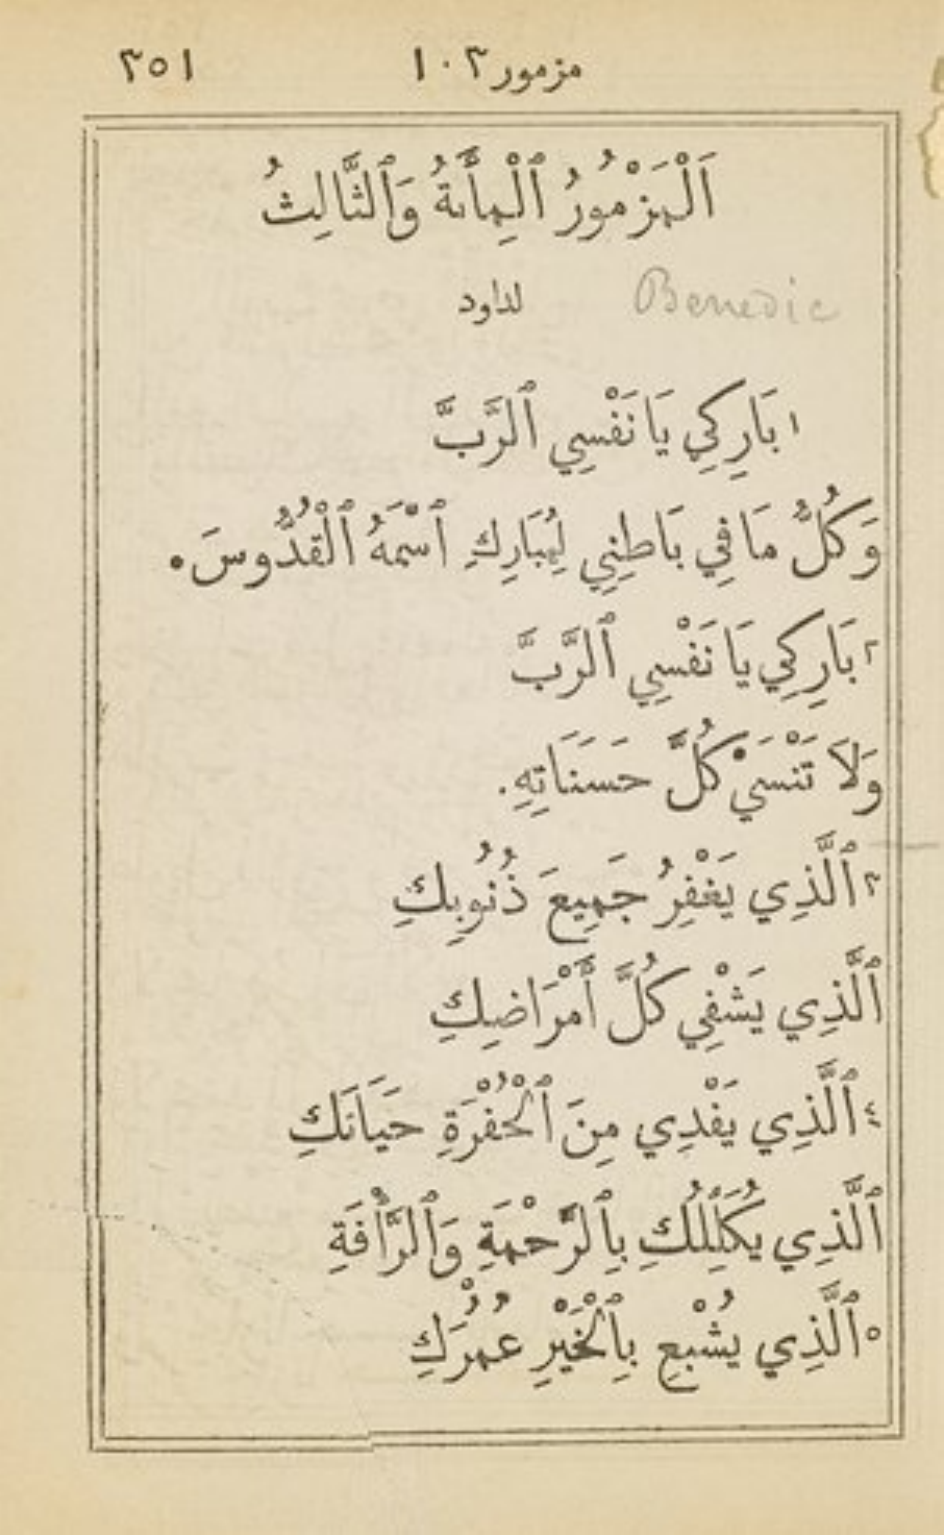 مزمور ١٠٣ ٣٥١
اَلْمَزْمُورُ ٱلْمِأَىةُ وَٱلثَّالِثُ
لداود Benedic
١ بَارِكِي يَا نَفْسِي ٱلرَّبَّ
وَكُلُّ مَا فِي بَاطِنِي لِيُبَارِكِ ٱسْمَهُ ٱلْقُدُّوسَ.
٢ بَارِكِي يَا نَفْسِي ٱلرَّبَّ
وَلَا تَنْسَيْ كُلَّ حَسَنَاتِهِ.
٣ ٱلَّذِي يَغْفِرُ جَمِيعَ ذُنُوبِكِ
ٱلَّذِي يَشْفِي كُلَّ أَمْرَاضِكِ
٤ ٱلَّذِي يَفْدِي مِنَ ٱلْحُفْرَةِ حَيَاتَكِ
ٱلَّذِي يُكَلِّلُكِ بِٱلرَّحْمَةِ وَٱلرَّأْفَةِ
٥ ٱلَّذِي يُشْبِعُ بِٱلْخَيْرِ عُمْرَكِ